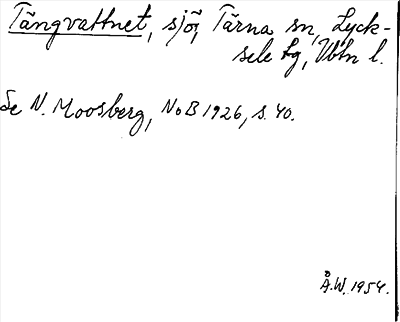 Tängvattnet, sjö, Tärna sn, Lyck-
sele tg, Vbtn l.
Se N. Moosberg, NoB 1926, s. 40.
Å.W. 1954.